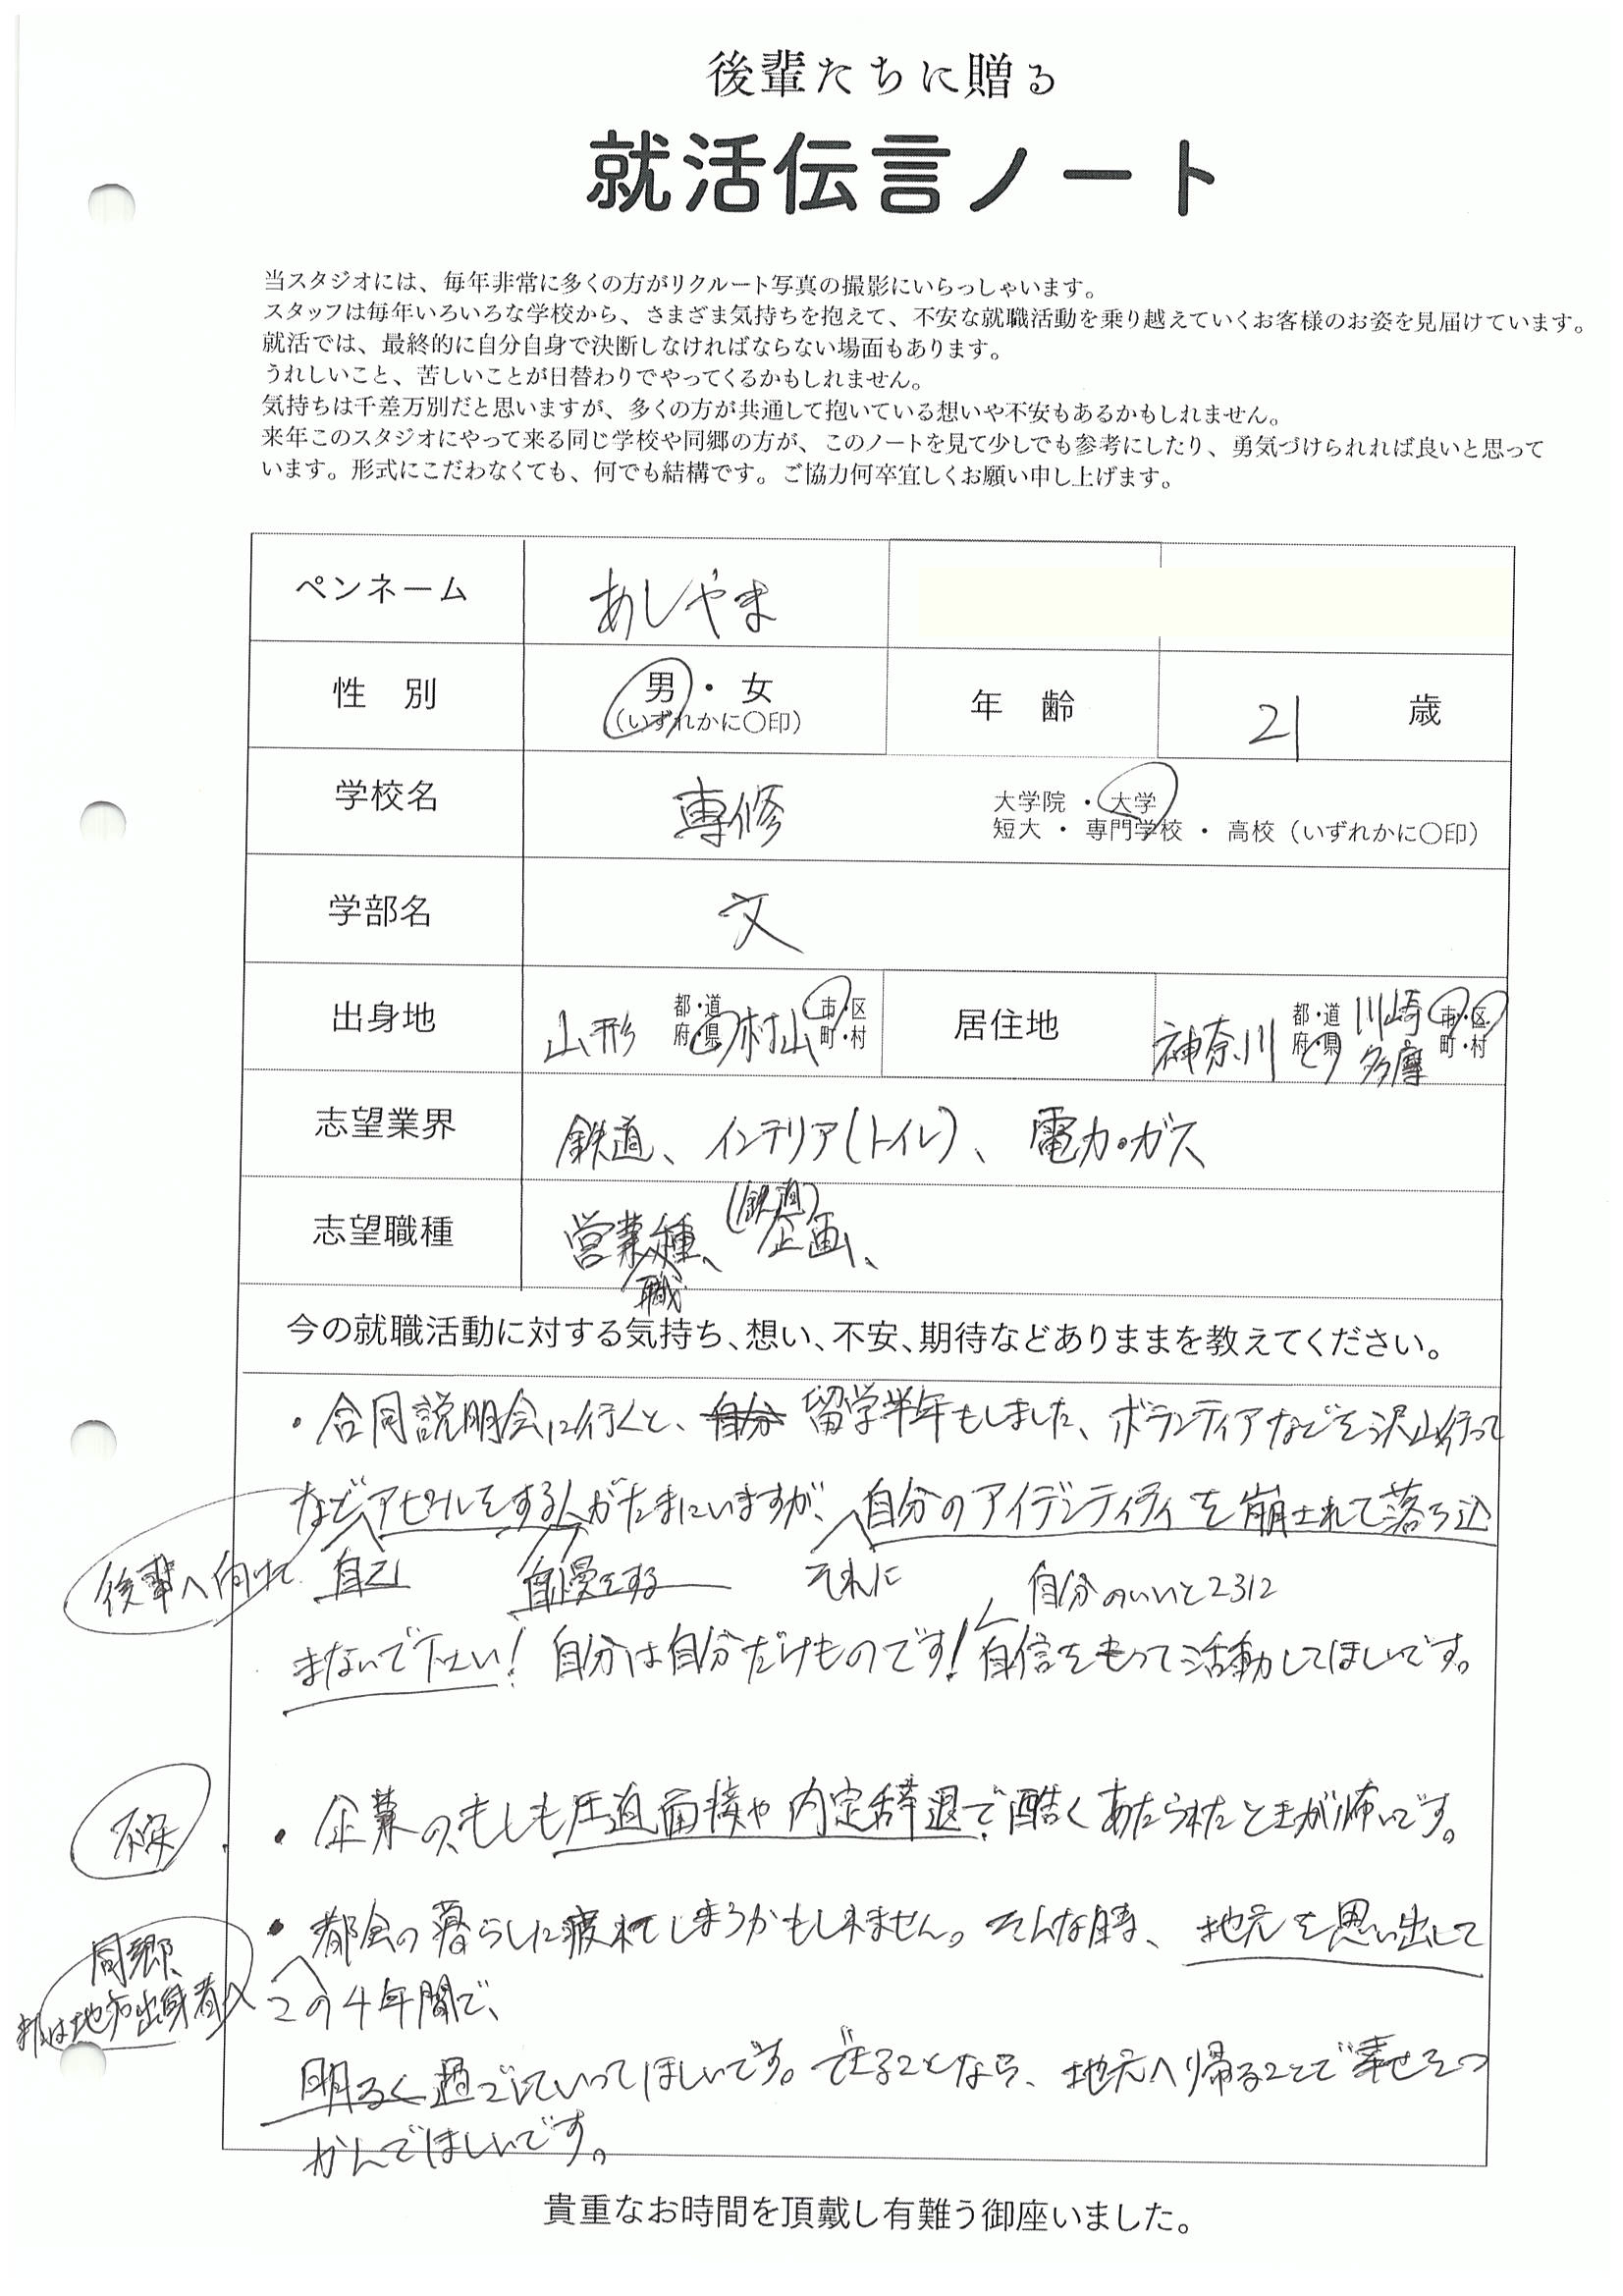 後輩たちに贈る
就活伝言ノート
当スタジオには、毎年非常に多くの方がリクルート写真の撮影にいらっしゃいます。
スタッフは毎年いろいろな学校から、さまざま気持ちを抱えて、不安な就職活動を乗り越えていくお客様のお姿を見届けています。
就活では、最終的に自分自身で決断しなければならない場面もあります。
うれしいこと、苦しいことが日替わりでやってくるかもしれません。
気持ちは千差万別だと思いますが、多くの方が共通して抱いている想いや不安もあるかもしれません。
来年このスタジオにやって来る同じ学校や同郷の方が、このノートを見て少しでも参考にしたり、勇気づけられれば良いと思って
います。形式にこだわなくても、何でも結構です。ご協力何卒宜しくお願い申し上げます。
ペンネーム あしやま
性 別 男・女 (いずれかに〇印) 年 齢 21 歳
学校名 専修 大学院・大学
短大・専門学校・高校(いずれかに〇印)
学部名 文
出身地 山形 都・道府・県 村山 市・区町・村 居住地 神奈川 都・道府・県 川崎 多摩 市・区町・村
志望業界 鉄道、インテリア(トイレ)、電力・ガス
(鉄道)
志望職種 営業種、企画、
職
今の就職活動に対する気持ち、想い、不安、期待などありままを教えてください。
・合同説明会に行くと、自分 留学半年もしました、ボランティアなどを沢山行って
などアピールをする人がたまにいますが、自分のアイデンティティを崩されて落ち込
後輩へ向けて 自己 自慢をする それに 自分のいいところに
まないで下さい! 自分は自分だけものです! 自信をもって活動してほしいです。
不安
・企業の、もしも圧迫面接や内定辞退で酷くあたられたときが怖いです。
・都会の暮らしに疲れてしまうかもしれません。そんな時、地元を思い出して
同郷、
又は地方出身者へ この4年間で、
明るく過ごしていってほしいです。できることなら、地元へ帰ることで幸せをつ
かんでほしいです。
貴重なお時間を頂戴し有難う御座いました。